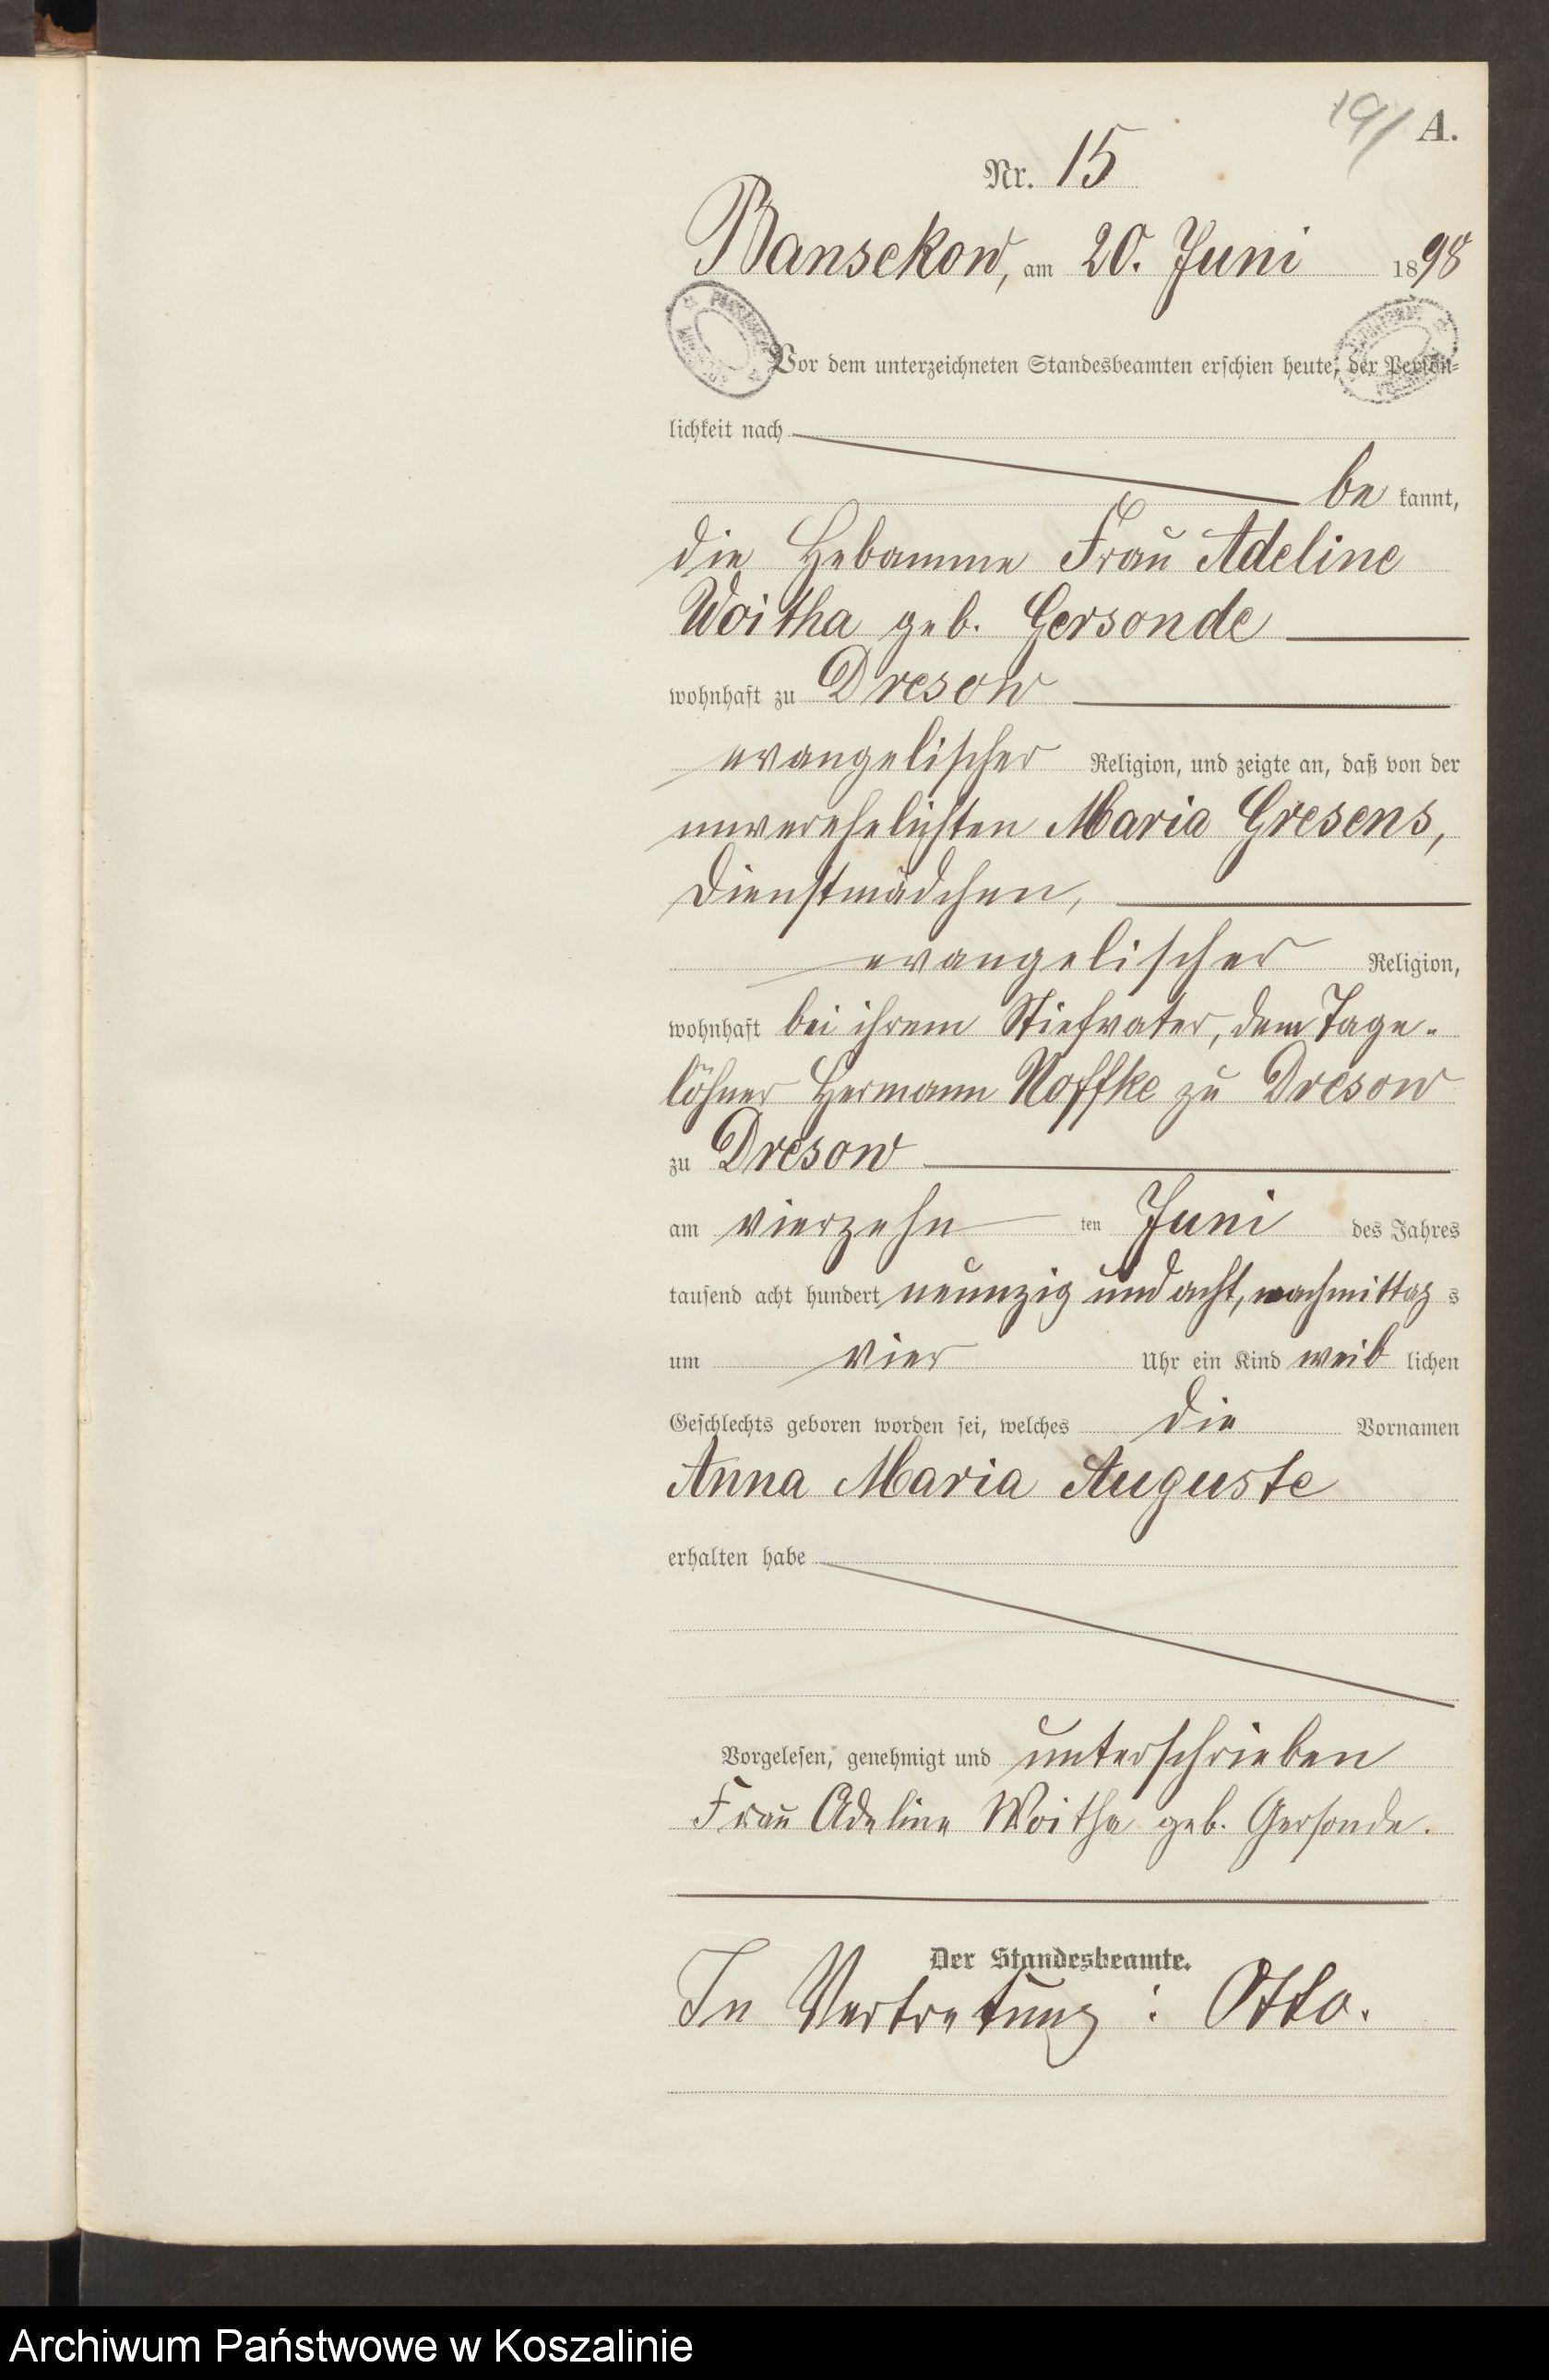 19/ A.
Nr. 15
Bansekow, am 20. Juni 1898
Vor dem unterzeichneten Standesbeamten erschien heute, der Persön-
lichkeit nach
be kannt,
die Hebamme Frau Adeline
Woitha geb. Gersonde
wohnhaft zu Dresow
evangelischer Religion, und zeigte an, daß von der
unverehelichten Maria Gresens,
Dienstmädchen,
evangelischer Religion,
wohnhaft bei ihrem Stiefvater, dem Tage-
löhner Hermann Noffke zu Dresow
zu Dresow
am vierzehn ten Juni des Jahres
tausend acht hundert neunzig und acht, nachmittag s
um vier Uhr ein Kind weib lichen
Geschlechts geboren worden sei, welches die Vornamen
Anna Maria Auguste
erhalten habe
Vorgelesen, genehmigt und unterschrieben
Frau Adeline Woitha geb. Gersonde.
Der Standesbeamte.
In Vertretung: Otto.
Archiwum Państwowe w Koszalinie